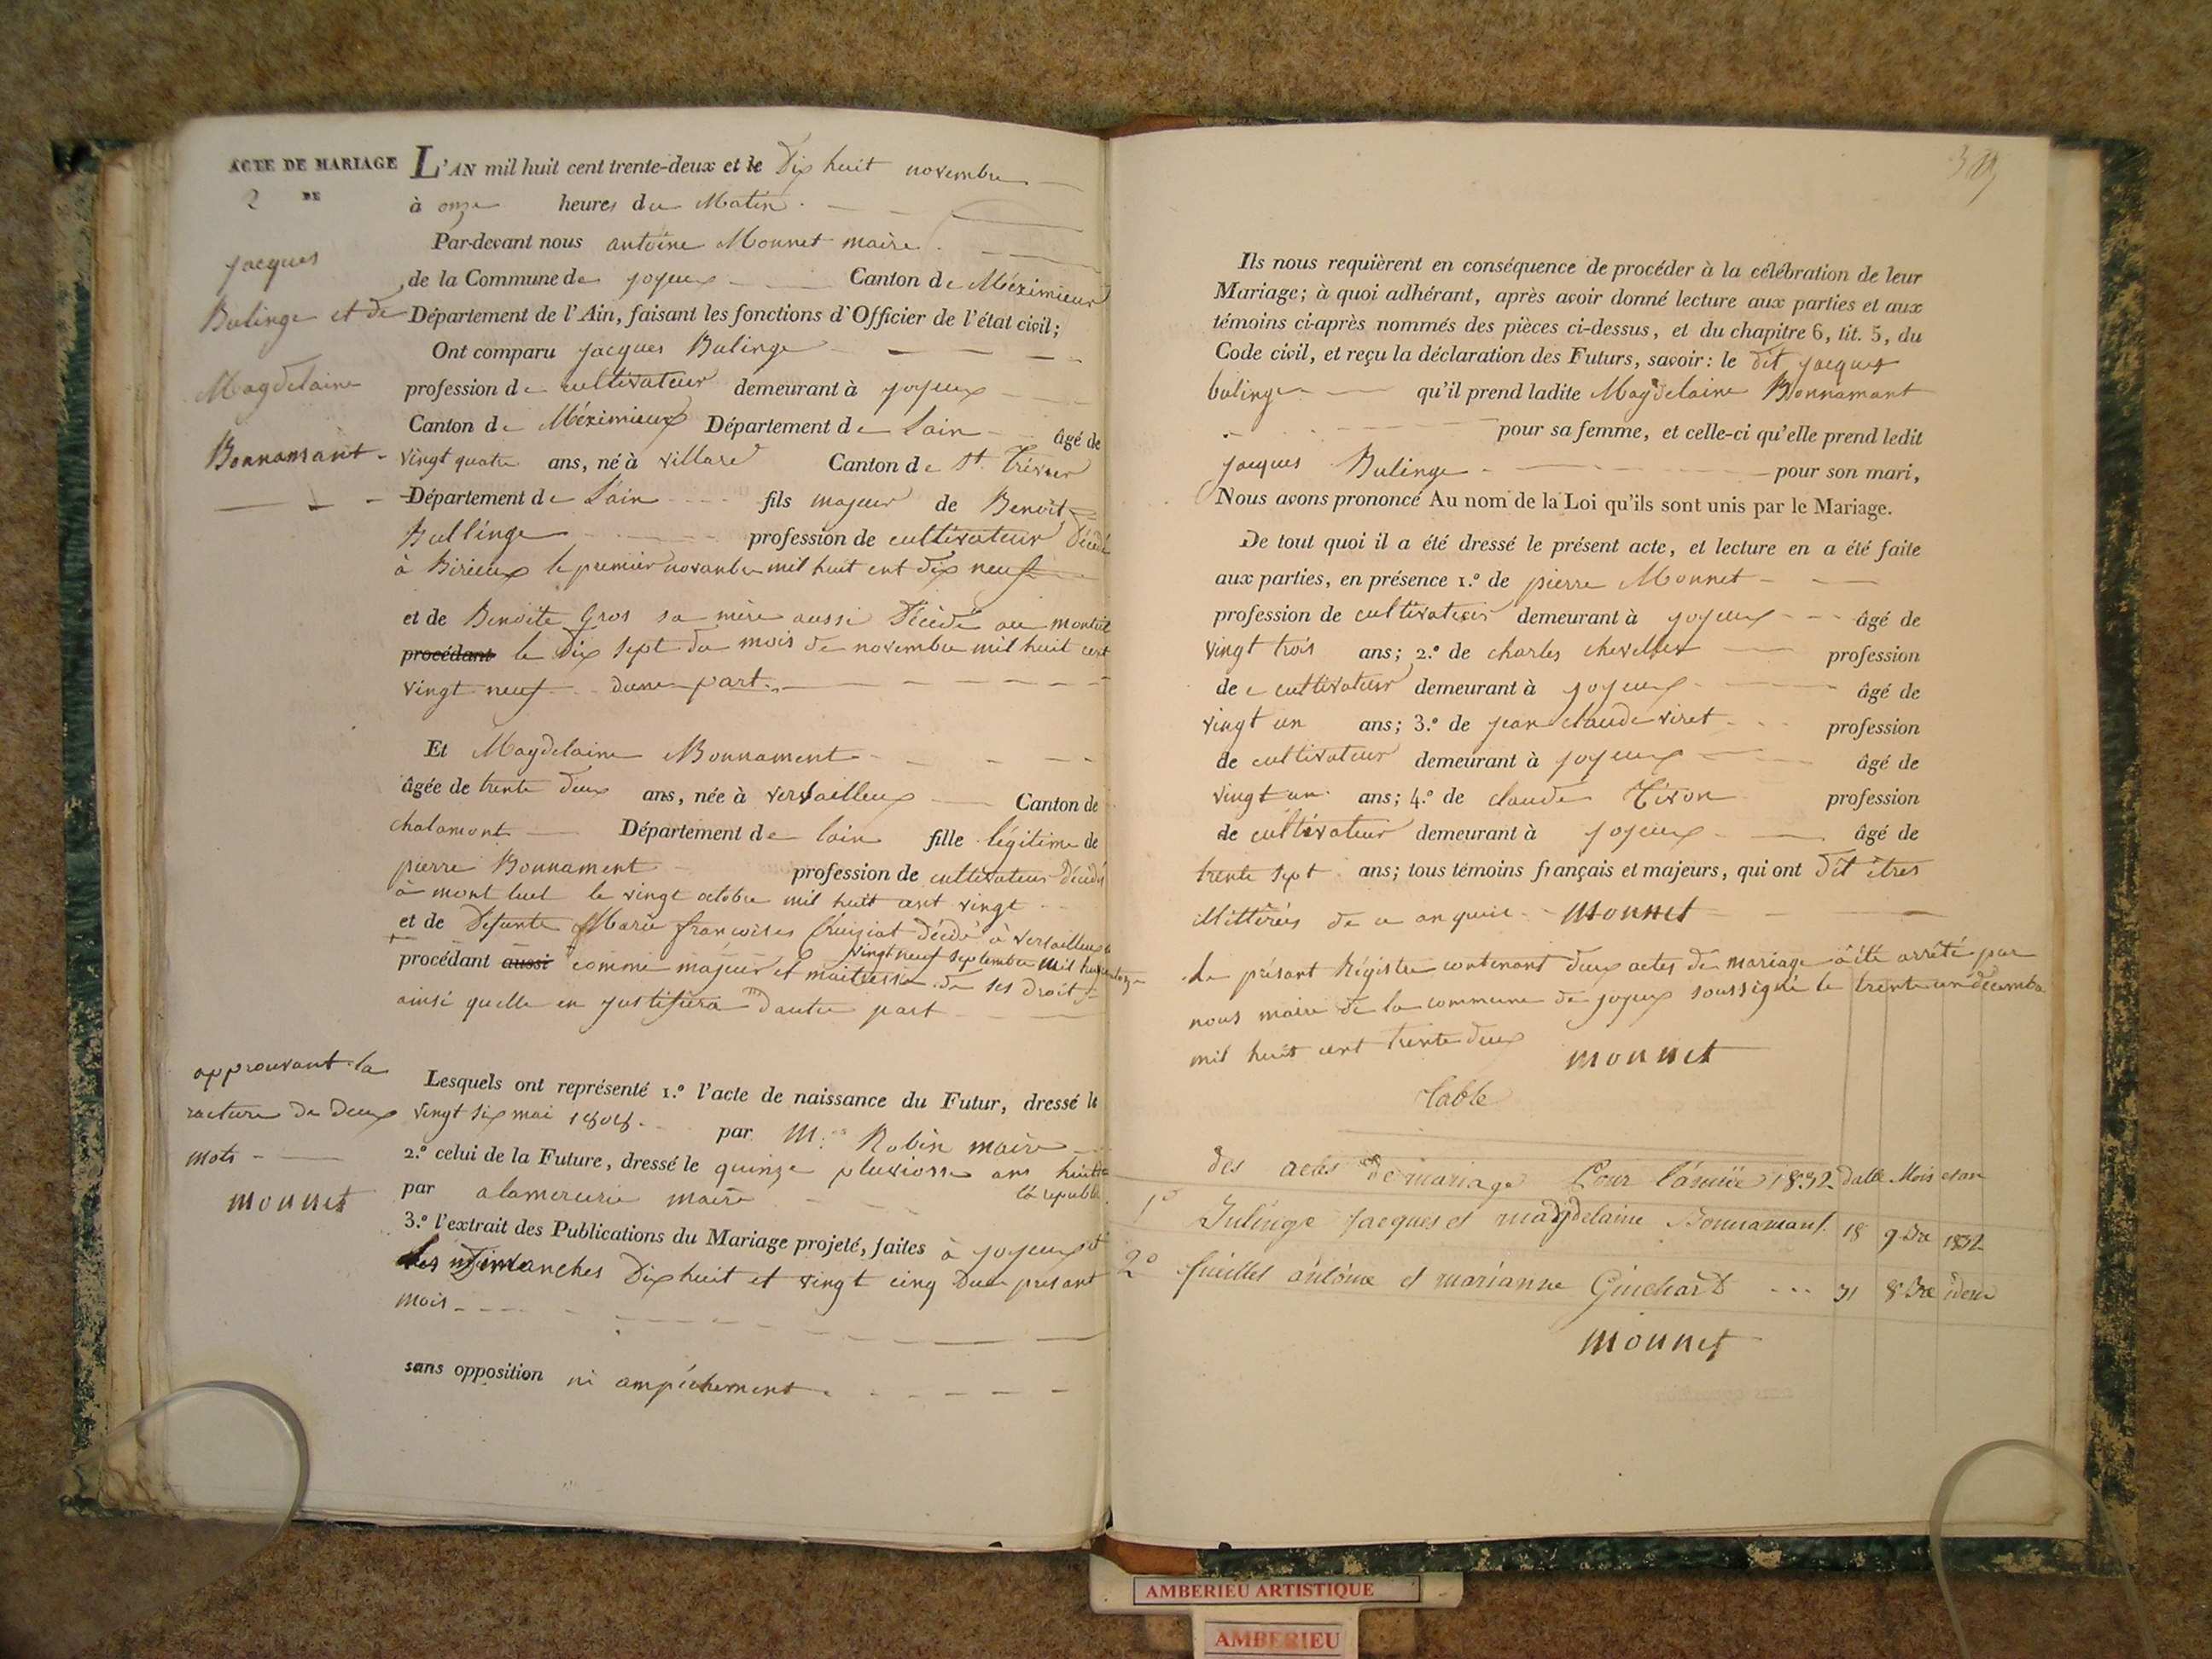 ACTE DE MARIAGE
2 DE
Jacques
Bulinge et de
Magdelaine
Bonnamant
L'AN mil huit cent trente-deux et le Dix huit novembre
à onze heures du Matin.
Par-devant nous antoine Monnet maire
de la Commune de joyeux Canton de Méximieux
Département de l'Ain, faisant les fonctions d'Officier de l'état civil;
Ont comparu jacques Bulinge
profession de cultivateur demeurant à joyeux
Canton de Méximieux Département de Lain âgé de
vingt quatre ans, né à villard Canton de St. Trévier
Département de Lain fils majeur de Benoit
Bullinge profession de cultivateur décédé
à Birieux le premier novanbre mil huit cent dix neuf
et de Benoite Gros sa mère aussi décédé au montel
procédant le dix sept du mois de novembre mil huit cent
vingt neuf dune part.
Et Magdelaine Bonnament
âgée de trente deux ans, née à versailleux Canton de
chalamont Département de lain fille légitime de
pierre Bonnament profession de cultivateur décédé
à mont luel le vingt octobre mil huit cent vingt
et de défunte Marie francoises décédé à versailleux
vingt neuf septembre mil huit
procédant aussi comme majeur et maitresse de ses droit
ainsi quelle en justifiera dautre part
approuvant la
racture de deux
mots
monnet
Lesquels ont représenté 1.º l'acte de naissance du Futur, dressé le
vingt six mai 1808. par M. Robin maire
2.º celui de la Future, dressé le quinze pluviose ans huitt
la republi.
par alamercerie maire
3.º l'extrait des Publications du Mariage projeté, faites à joyeux et
les Dimanches Dix huit et vingt cinq Du presant
mois
sans opposition ni ampéchement
Ils nous requièrent en conséquence de procéder à la célébration de leur
Mariage; à quoi adhérant, après avoir donné lecture aux parties et aux
témoins ci-après nommés des pièces ci-dessus, et du chapitre 6, tit. 5, du
Code civil, et reçu la déclaration des Futurs, savoir: le dit jacques
bulinge qu'il prend ladite Magdelaine Bonnamant
pour sa femme, et celle-ci qu'elle prend ledit
jacques Bulinge pour son mari,
Nous avons prononcé Au nom de la Loi qu'ils sont unis par le Mariage.
De tout quoi il a été dressé le présent acte, et lecture en a été faite
aux parties, en présence 1.º de pierre Monnet
profession de cultivateur demeurant à joyeux âgé de
vingt trois ans; 2.º de charles chevellier profession
de cultivateur demeurant à joyeux âgé de
vingt un ans; 3.º de jean claude viret profession
de cultivateur demeurant à joyeux âgé de
vingt un ans; 4.º de claude Tivon profession
de cultivateur demeurant à joyeux âgé de
trente sept ans; tous témoins français et majeurs, qui ont dit êtres
illittérés de ce anquit monnet
Le présant Régistre contenant deux actes de mariage a été arrêté par
nous maire de la commune de joyeux soussigné le trente un décembre
mil huit cent trente deux monnet
Table
des actes de mariage Pour l'année 1832 datte Mois et an
1º Bulinge Jacques et magdelaine Bonnamant. 18 9.bre 1832
2º fueillet antoine et marianne Guichard ... 31 8.bre idem
monnet
AMBERIEU ARTISTIQUE
AMBERIEU